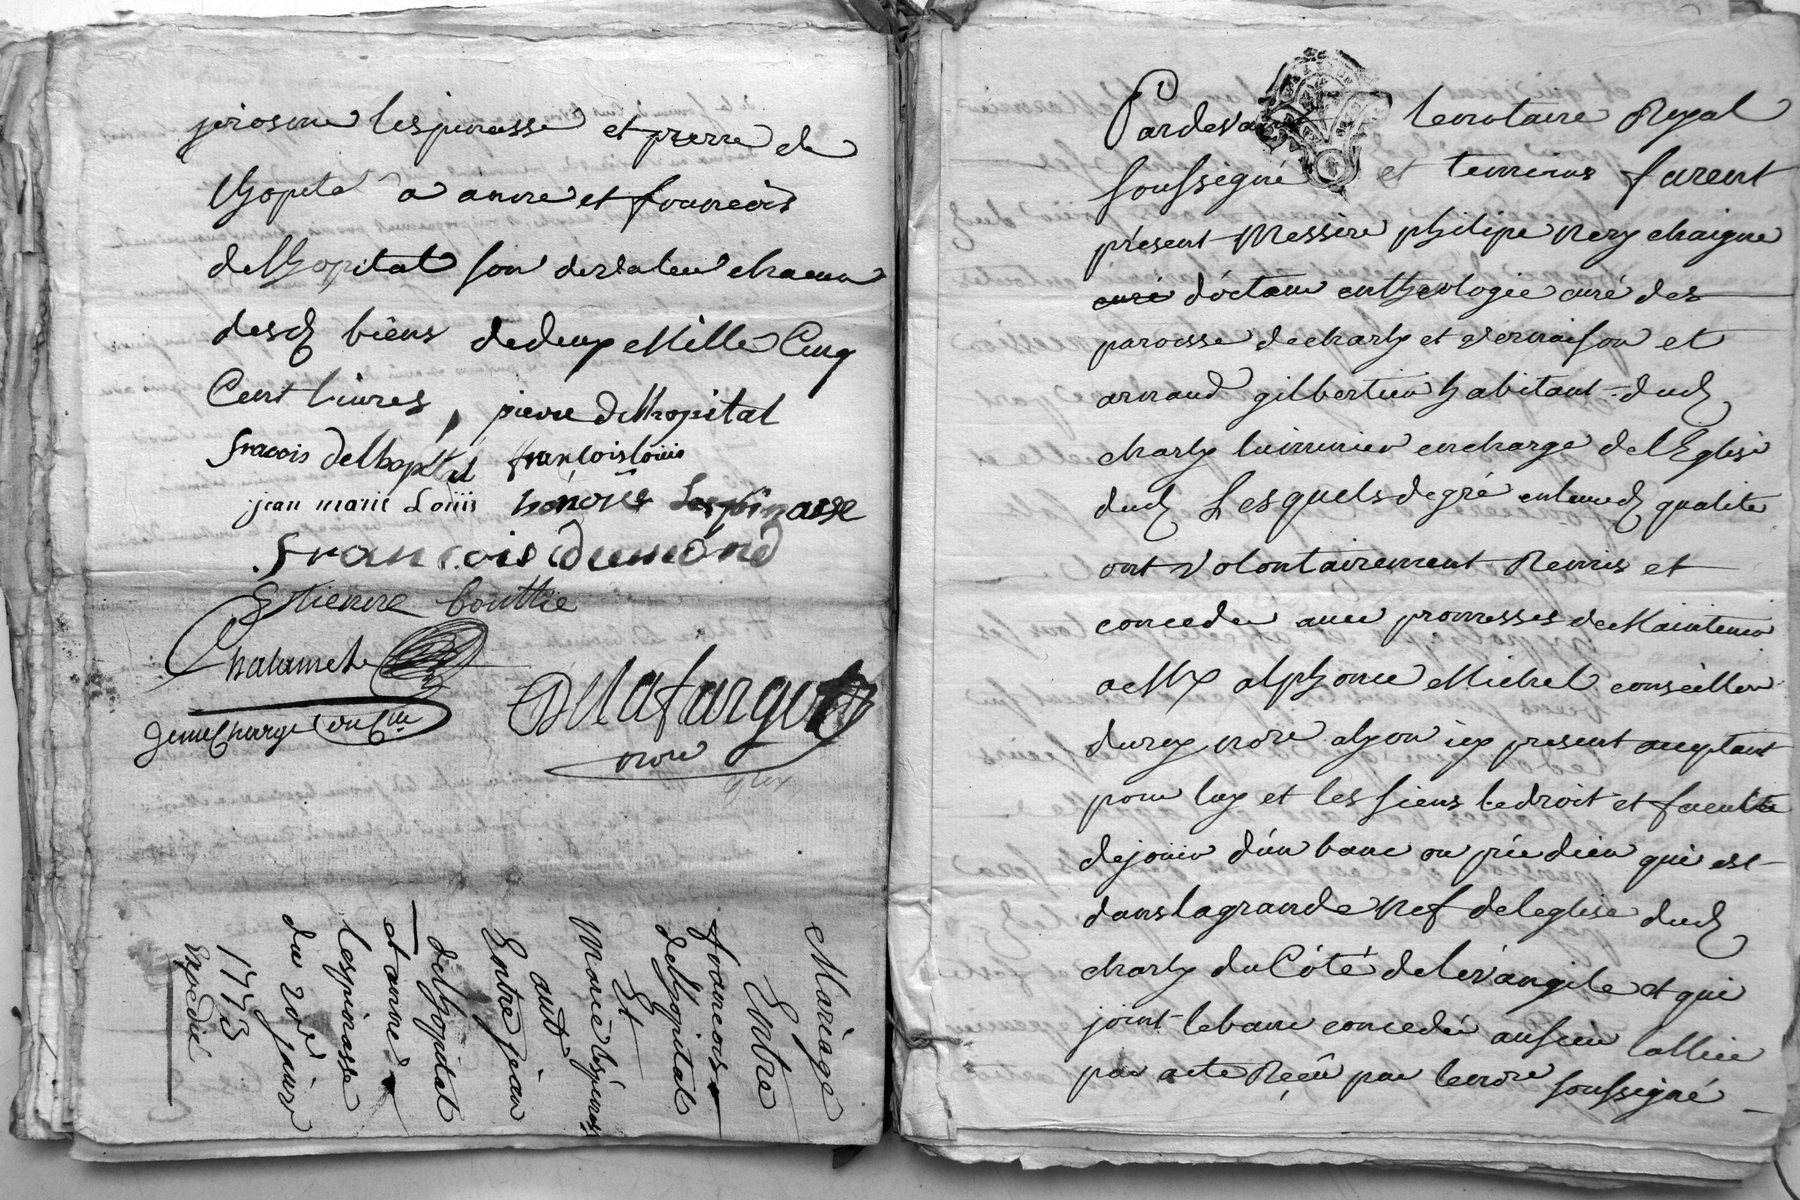 jerosme lespinasse et pierre de
lhopital a anne et francois
delhopital son de valeur chacun
desd biens de deux Mille Cinq
Cent livres, pierre delhopital
fracois delhopital françois louis
jean marie Louis honoré Lespinasse
francois dumond
Estienne bouttie
Chalamel
Delafargue
nore
Mariage
Entre
francois
delhopital
Et
Marie lespinasse
autre
Entre jean
delhopital
et anne
lespinasse
du 20e janvr
1773
Expedié
Pardevant le notaire Royal
soussigné et temoins furent
présent Messire philipe Nery chaigne
curé docteur en theologie curé des
paroisse de charly et vernaison et
arnaud gilbertier habitant dud
charly luminier en charge de l'Eglise
dud Lesquels de gré en leurd qualité
ont volontairement Remis et
concedé avec promesses de Maintenir
a Me alphonce Michel conseiller
du roy nore a lyon icy present acceptant
pour luy et les siens le droit et faculté
de jouir d'un banc ou prie dieu qui est
dans la grande Nef de leglise dud
charly du Côté de lévangile et qui
joint le banc concedé au sieur lallier
par acte Reçû par le nore soussigné